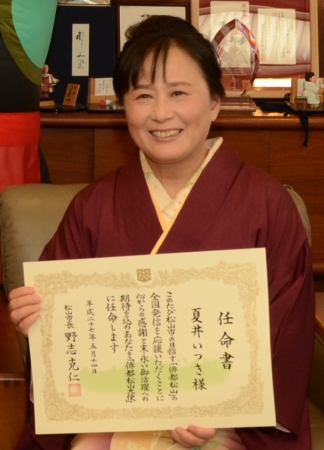 任命書
夏井いつき様
このたび松山市の目指す「俳都松山」の
全国発信を応援いただくことに
心からの感謝と末永い御活躍への
期待を込めあなたを「俳都松山大使」
に任命します
平成二十七年五月十四日
松山市長 野志克仁